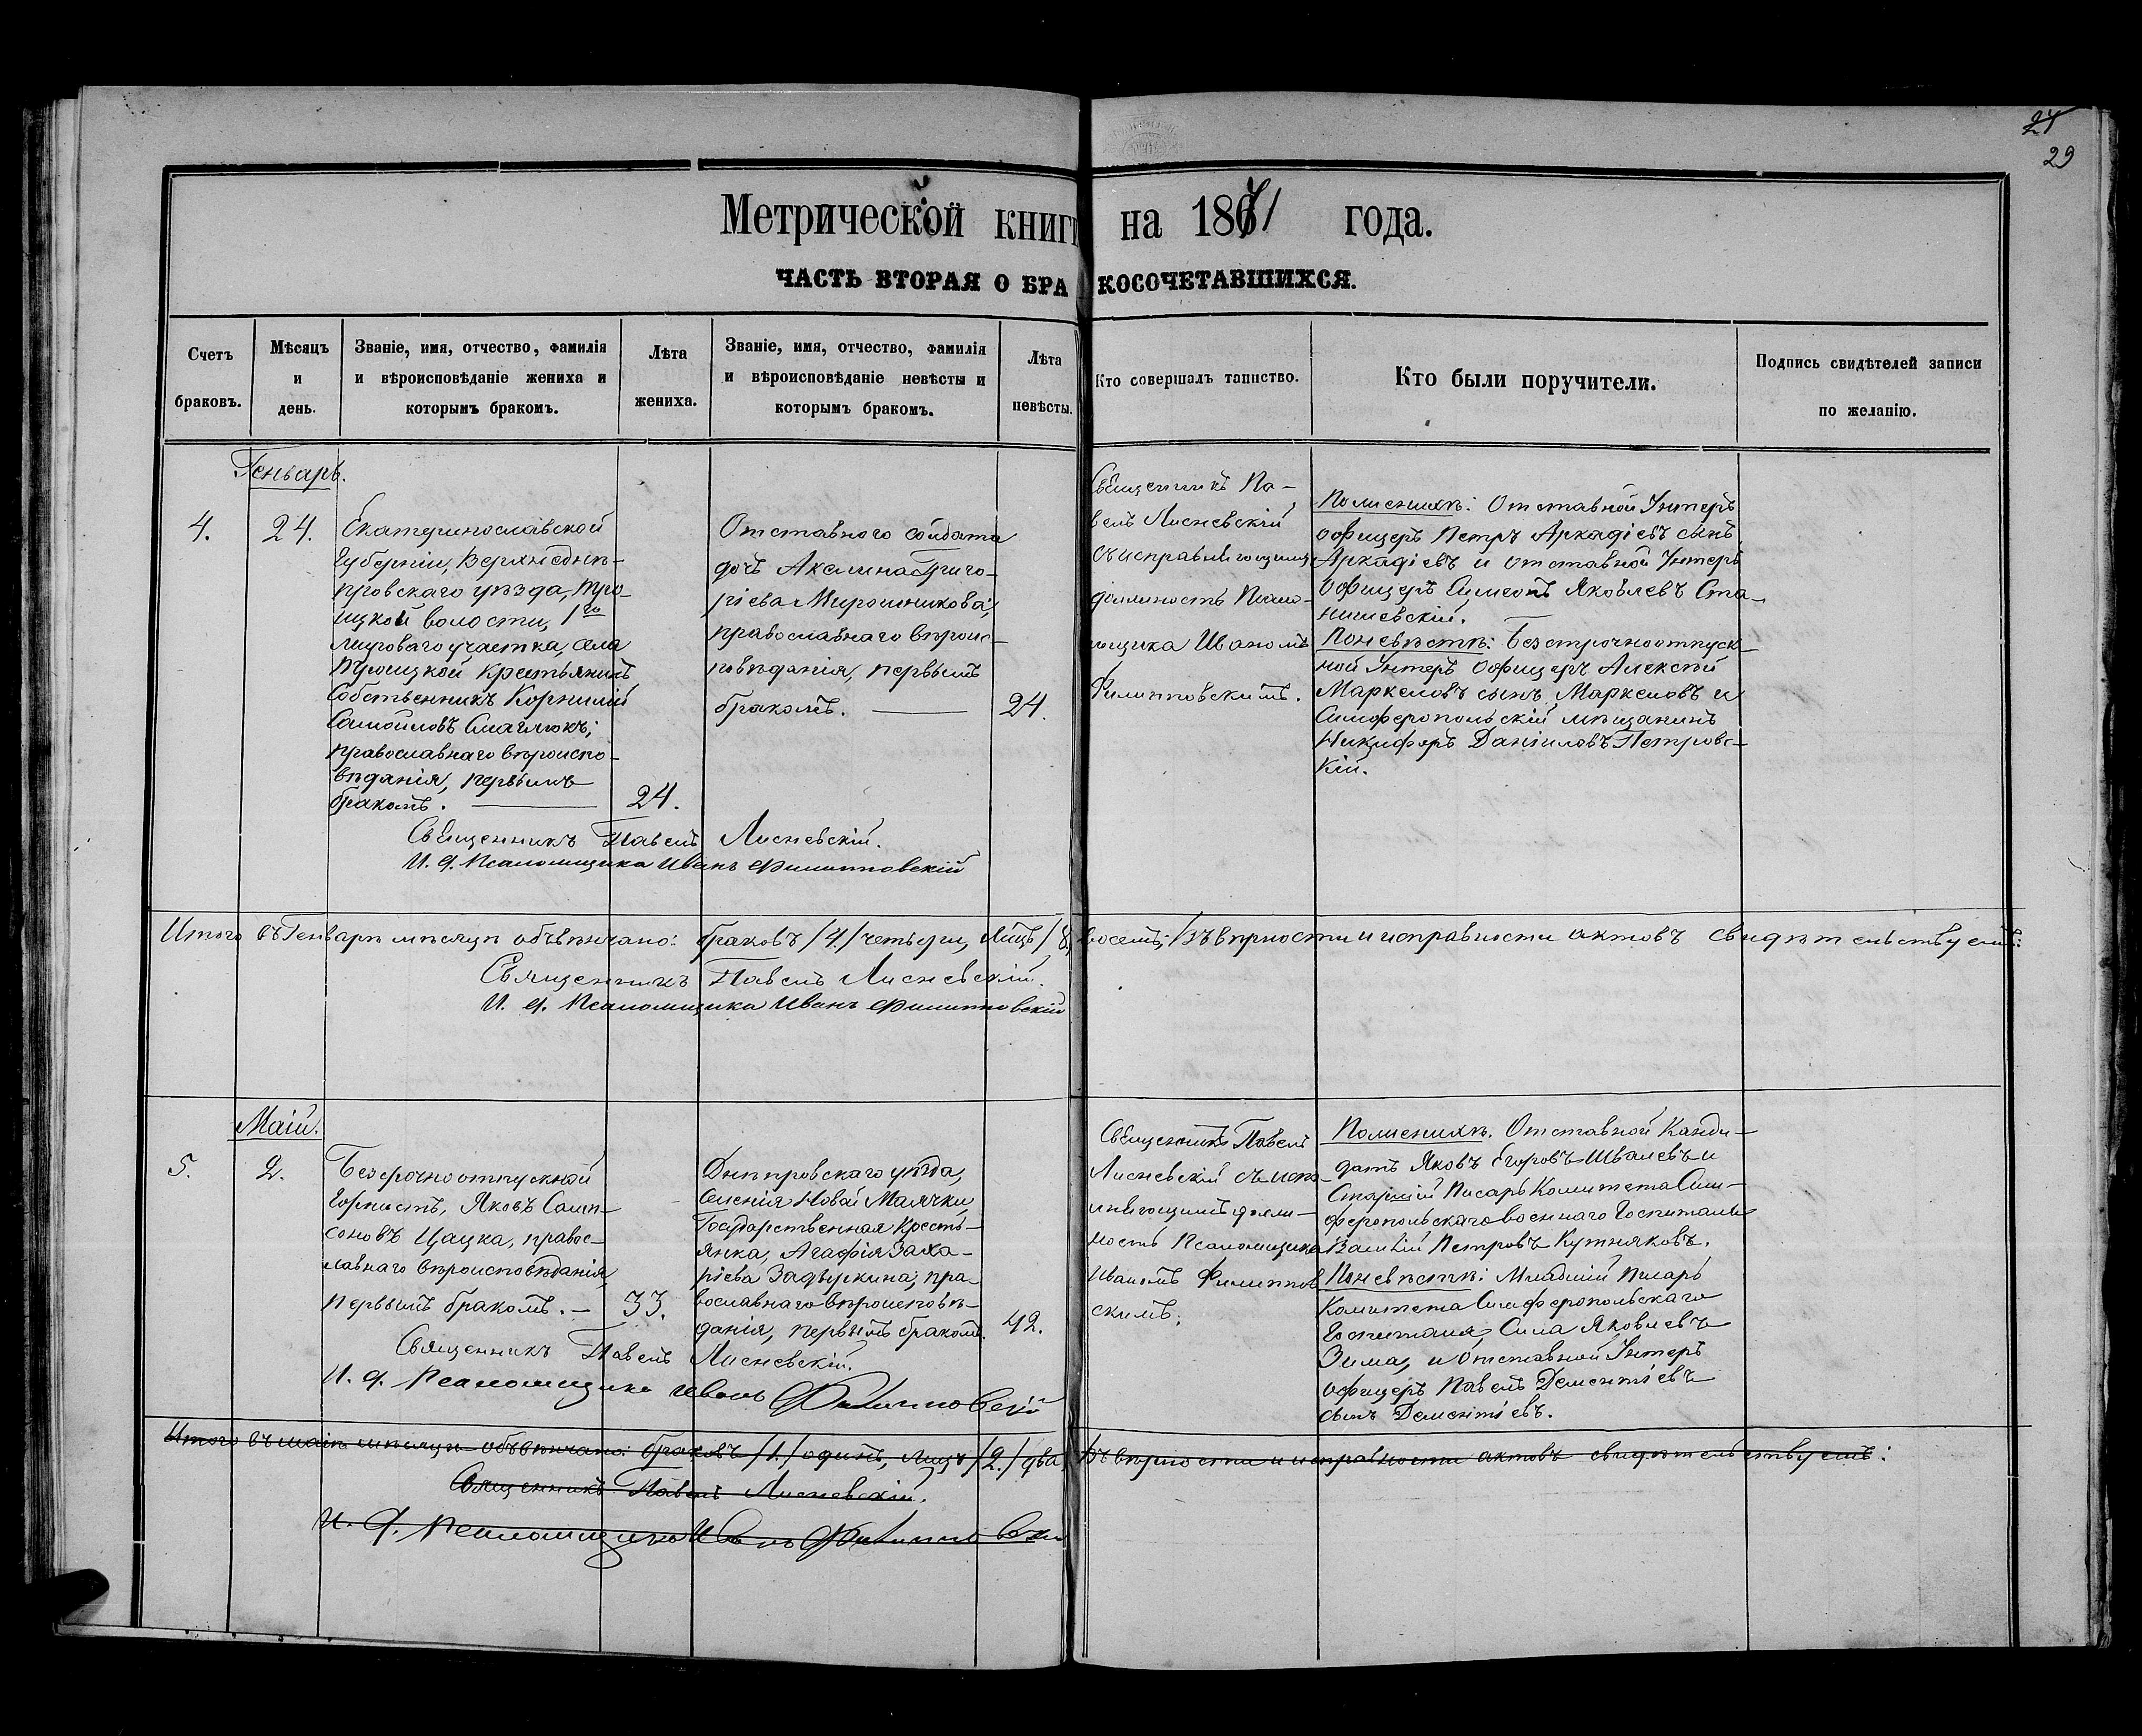 27
29
Метрической книги на 1871 года.
ЧАСТЬ ВТОРАЯ О БРАКОСОЧЕТАВШИХСЯ.
Счетъ браковъ.
Мѣсяцъ и день.
Званіе, имя, отчество, фамилія
и вѣроисповѣданіе жениха и
которымъ бракомъ.
Лѣта жениха.
Званіе, имя, отчество, фамилія
и вѣроисповѣданіе невѣсты и
которымъ бракомъ.
Лѣта невѣсты.
Кто совершалъ таинство.
Кто были поручители.
Подпись свидѣтелей записи
по желанію.
Генварь.
4.
24.
Екатеринославской
Губерніи, Верхнеднѣ-
провскаго уѣзда, Тро
ицкой волости, 1го
мироваго участка, села
Троицкой Крестьянинъ
Собственникъ Корнилій
Самойловъ Смаглюкъ;
православнаго вѣроиспо-
вѣданія, первымъ
бракомъ.
24.
Отставного солдата
дочь Акелина Григо-
ріева Мирошникова;
православнаго вѣроис-
повѣданія, первымъ
бракомъ.
24.
Священникъ Па-
велъ Лисневскій
съ исправляющимъ
должность Псало-
мщика Іваномъ
Филипповскимъ.
По женихѣ: Отставной Унтеръ
оофицеръ Петръ Аркадіевъ сынъ
Аркадіевъ и отставной Унтеръ
Оофицеръ Симеонъ Яковлевъ Ста-
нишевскій.
По невѣстѣ: Безсрочноотпуск-
ной Унтеръ Оофицеръ Алексѣй
Маркеловъ сынъ Маркеловъ и
Симферопольскій мѣщанинъ
Никифоръ Даніиловъ Петровс-
кій.
Священникъ Павелъ Лисневскій.
И. д. Псаломщика Иванъ Филипповскій
Итого въ Генварѣ мѣсяцѣ обвѣнчано: браковъ /4/ четыри, лицъ /8/ восемъ; Въ вѣрности и исправности актовъ свидѣтельствуемъ:
Священникъ Павелъ Лисневскій.
И. д. Псаломщика Иванъ Филипповскій
Маій.
5.
2.
Безсрочноотпускной
Горнистъ, Яковъ Самп-
соновъ Цацка, правос-
лавнаго вѣроисповѣданія,
первымъ бракомъ.
33.
Днѣпровскаго уѣзда,
селенія Новой Маячки,
Государственная Кресть-
янка, Агафія Заха-
ріева Задвуркина; пра-
вославнаго вѣроисповѣ-
данія, первымъ бракомъ.
42.
Священникъ Павелъ
Лисневскій съ испра-
вляющимъ долж-
ность Псаломщика
Иваномъ Филиппов
скимъ.
По женихѣ. Отставной Канди-
датъ Яковъ Егоровъ Швалевъ и
Старшій Писарь Комитета Сим-
феропольскаго военнаго Госпиталя
Василій Петровъ Кутняковъ.
По невѣстѣ: Младшій Писарь
Комитета Симферопольскаго
Госпиталя, Сила Яковлевъ
Зима, и Отставной Унтеръ
офицеръ Павелъ Дементіевъ
сынъ Дементіевъ.
Священникъ Павелъ Лисневскій.
И. д. Псаломщика Иванъ Филипповскій
Итого въ маіѣ мѣсяцѣ обвѣнчано: браковъ /1./ одинъ, лицъ /2./ два, Въ вѣрности и исправности актовъ свидѣтельствуемъ:
Священникъ Павелъ Лисневскій.
И. д. Псаломщика Иванъ Филипповскій